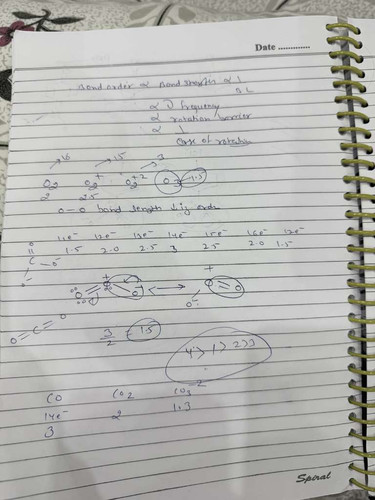 Date ..............
Bond order ∝ Bond strength ∝ 1
B.L
∝ ν frequency
∝ rotation barrier
∝ 1
ease of rotation
16 15 3
O2 O2+ O2+2 O3 1.5
2 2.5
O-O bond length order
11e- 12e- 13e- 14e- 15e- 16e- 17e-
1.5 2.0 2.5 3 2.5 2.0 1.5
O
C O-
O-
O + O- ↔ + O
O-
O = C = O
3/2 = 1.5
4 > 1 > 2 > 3
CO CO2 CO3-2
14e- 2 1.3
3
Spiral